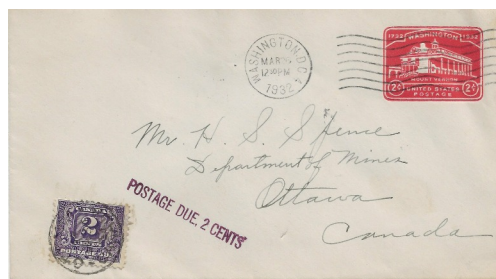 WASHINGTON, D.C.
MAR
12 PM
1932
1732 WASHINGTON 1932
MOUNT VERNON
2¢ UNITED STATES 2¢
POSTAGE
Mr. H. S. Spence
Department of Mines
Ottawa
Canada
POSTAGE DUE. 2 CENTS
2
POSTAGE